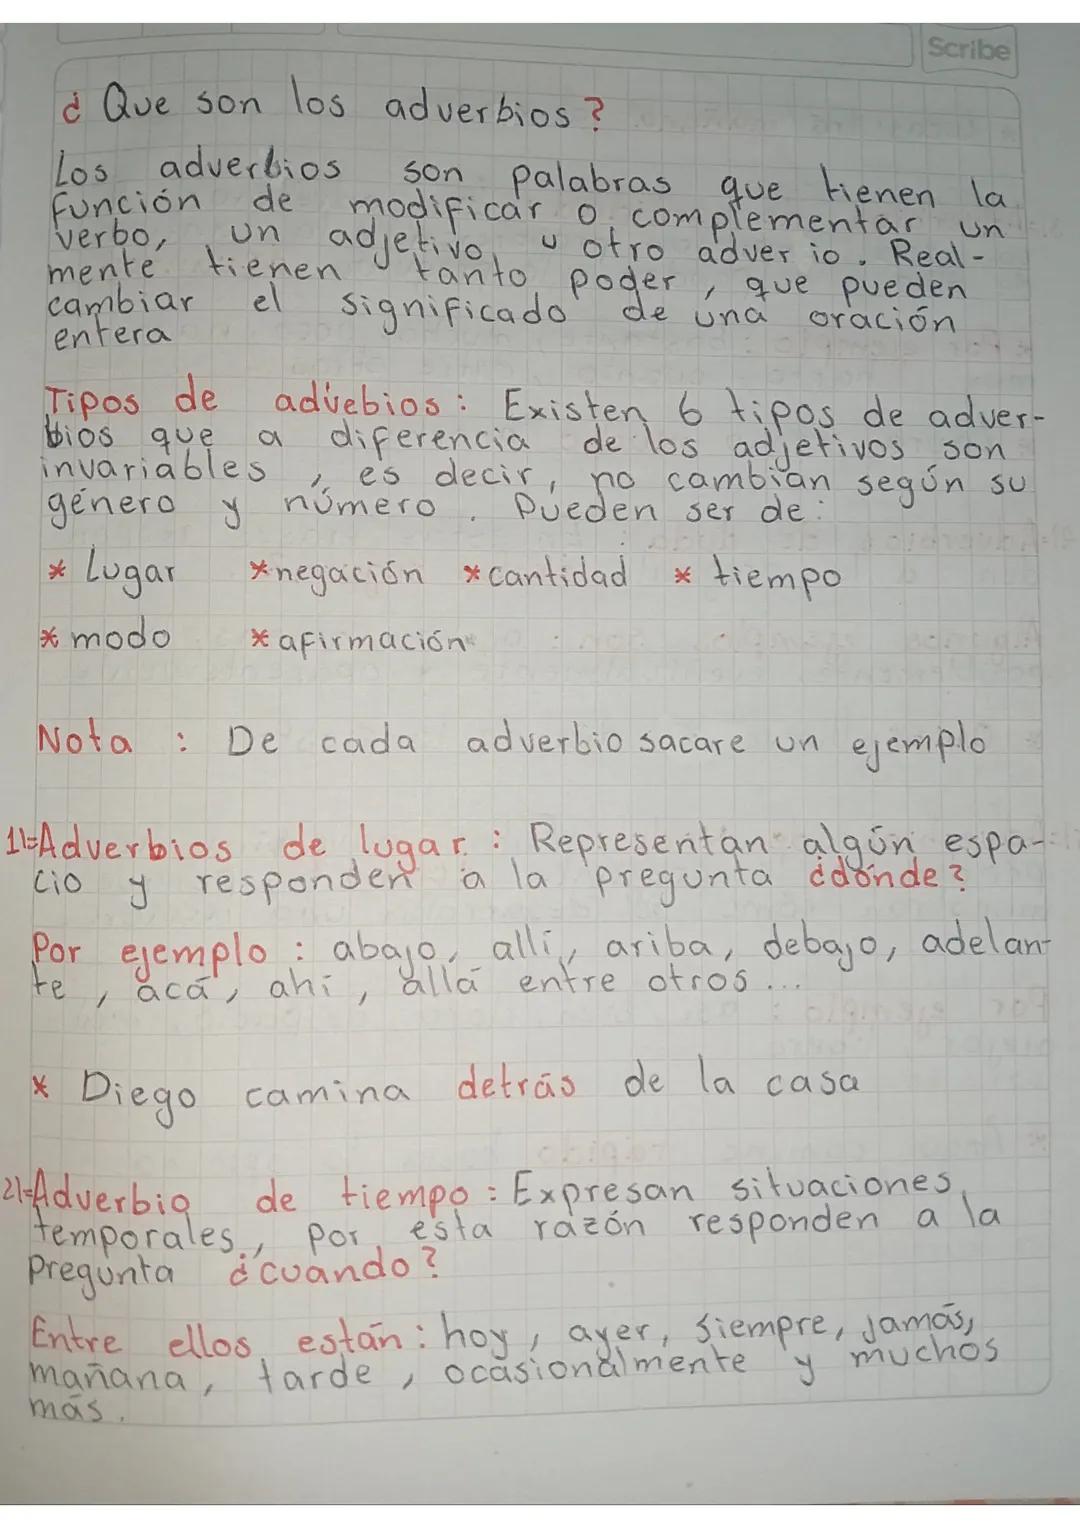 Scribe
¿Que son los adverbios?
Los adverbios son palabras que tienen la
función de modificar o complementar un
verbo, un adjetivo u otro adver io. Real-
mente tienen tanto poder, que pueden
cambiar el significado de una oración
entera
Tipos de advebios: Existen 6 tipos de adver-
bios que a diferencia de los adjetivos son
invariables, es decir, no cambian según su
género y número. Pueden ser de:
* Lugar *negación *cantidad * tiempo
* modo * afirmación
Nota : De cada adverbio sacare un ejemplo
1)=Adverbios de lugar : Representan algún espa-
cio y responden a la pregunta ¿dónde?
Por ejemplo : abajo, allí, ariba, debajo, adelan-
te, acá, ahí, allá entre otros...
* Diego camina detrás de la casa
2)=Adverbio de tiempo : Expresan situaciones
temporales, por esta razón responden a la
pregunta ¿cuando?
Entre ellos están : hoy, ayer, siempre, jamás,
mañana, tarde, ocasionalmente y muchos
más.